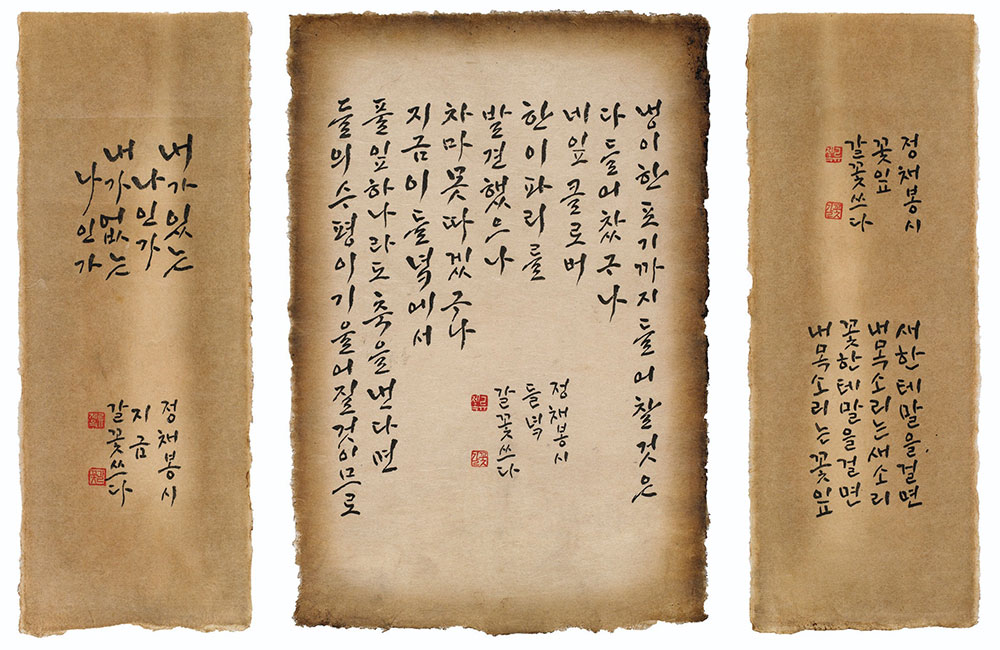 내가 있는
나인가
내가 없는
나인가
정채봉 시
지금
갈꽃 쓰다
냉이 한 포기까지 들어찰 것은
다 들어찼구나
네잎 클로버
한 이파리를
발견했으나
차마 못 따겠구나
지금 이 들녘에서
풀잎 하나라도 축을 낸다면
들의 수평이 기울어질 것이므로
정채봉 시
들녘
갈꽃 쓰다
정채봉 시
꽃잎
갈꽃 쓰다
새한테 말을 걸면
내 목소리는 새소리
꽃한테 말을 걸면
내 목소리는 꽃잎